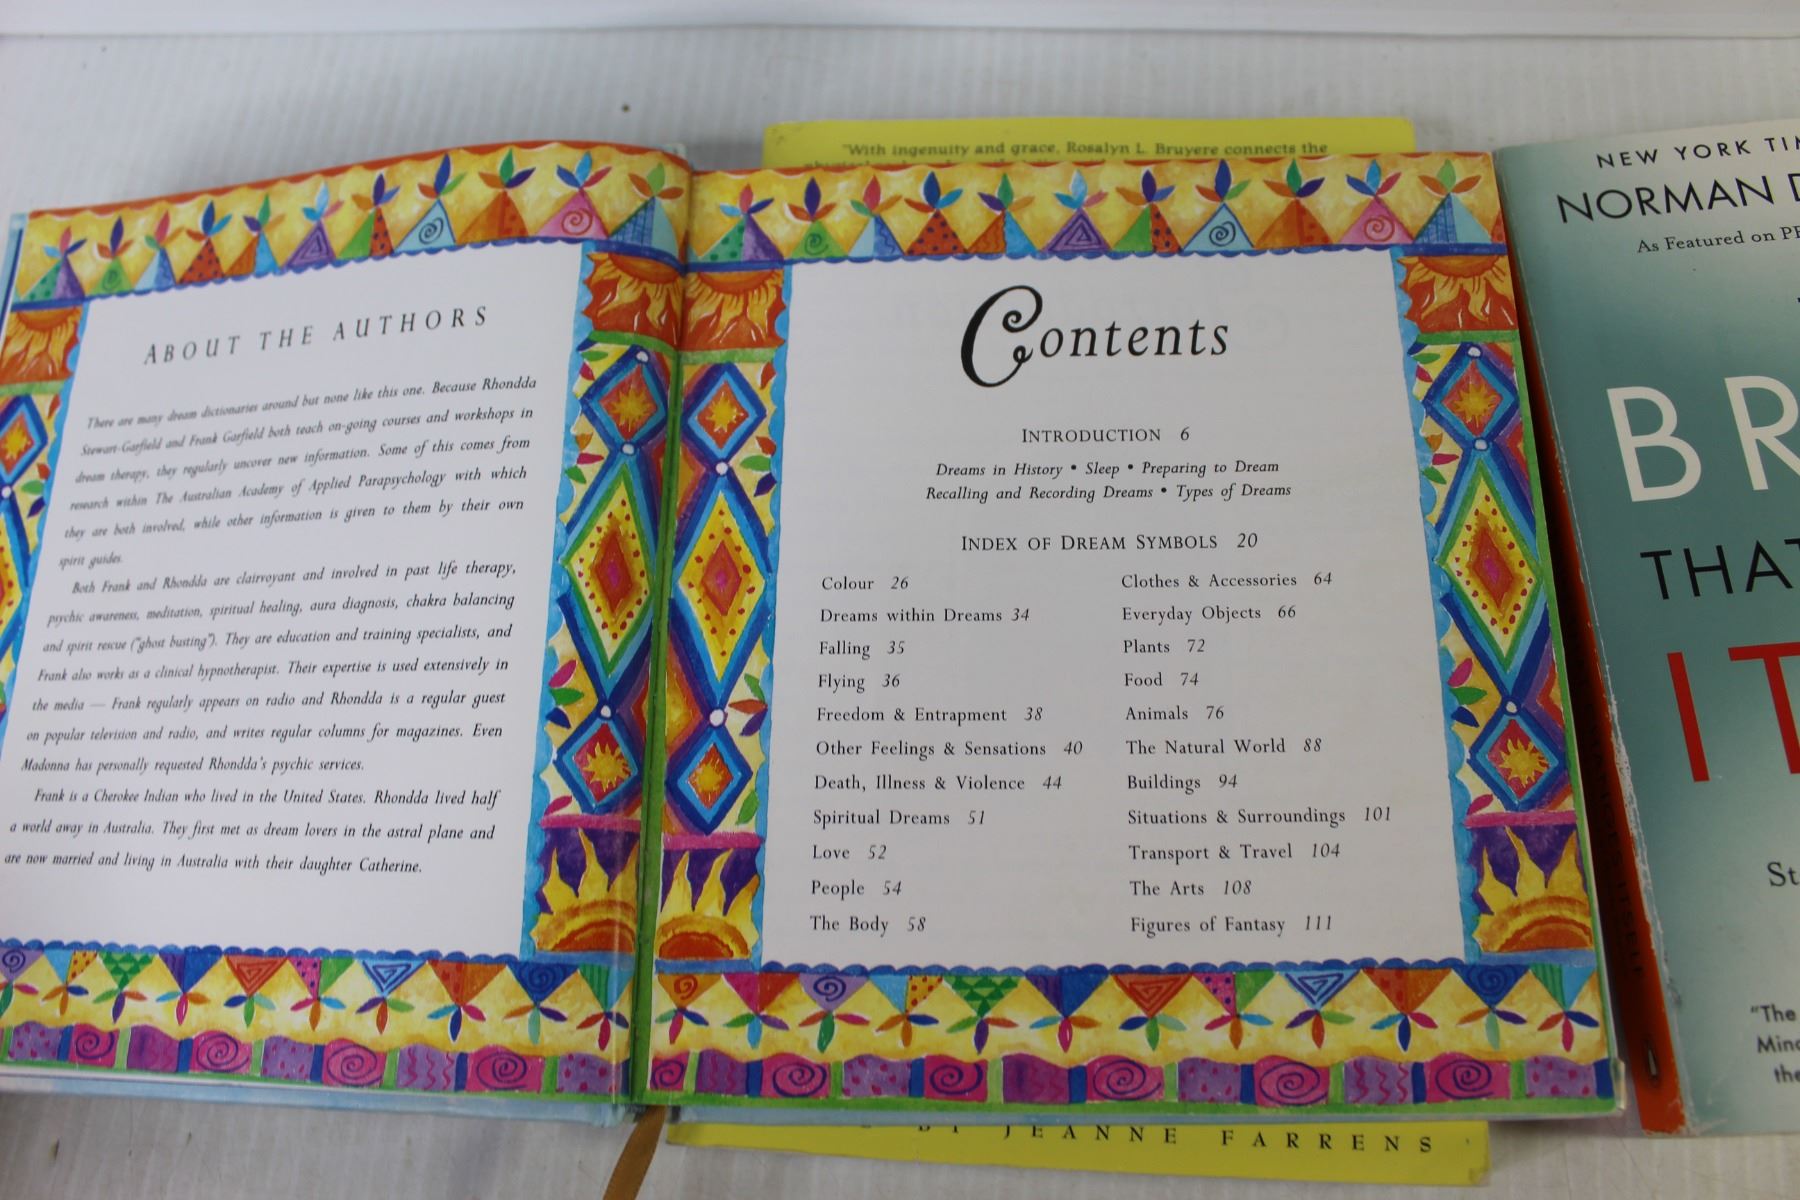 "With ingenuity and grace, Rosalyn L. Bruyere connects the
ABOUT THE AUTHORS
There are many dream dictionaries around but none like this one. Because Rhondda
Stewart-Garfield and Frank Garfield both teach on-going courses and workshops in
dream therapy, they regularly uncover new information. Some of this comes from
research within The Australian Academy of Applied Parapsychology with which
they are both involved, while other information is given to them by their own
spirit guides.
Both Frank and Rhondda are clairvoyant and involved in past life therapy,
psychic awareness, meditation, spiritual healing, aura diagnosis, chakra balancing
and spirit rescue ("ghost busting"). They are education and training specialists, and
Frank also works as a clinical hypnotherapist. Their expertise is used extensively in
the media — Frank regularly appears on radio and Rhondda is a regular guest
on popular television and radio, and writes regular columns for magazines. Even
Madonna has personally requested Rhondda's psychic services.
Frank is a Cherokee Indian who lived in the United States. Rhondda lived half
a world away in Australia. They first met as dream lovers in the astral plane and
are now married and living in Australia with their daughter Catherine.
Contents
INTRODUCTION 6
Dreams in History • Sleep • Preparing to Dream
Recalling and Recording Dreams • Types of Dreams
INDEX OF DREAM SYMBOLS 20
Colour 26
Dreams within Dreams 34
Falling 35
Flying 36
Freedom & Entrapment 38
Other Feelings & Sensations 40
Death, Illness & Violence 44
Spiritual Dreams 51
Love 52
People 54
The Body 58
Clothes & Accessories 64
Everyday Objects 66
Plants 72
Food 74
Animals 76
The Natural World 88
Buildings 94
Situations & Surroundings 101
Transport & Travel 104
The Arts 108
Figures of Fantasy 111
BY JEANNE FARRENS
NEW YORK TIM
NORMAN D
As Featured on PB
BR
THAT
IT
St
"The
Mind
the
ITSELF